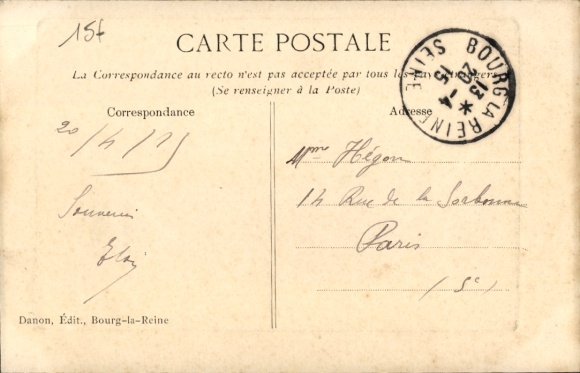 15f
CARTE POSTALE
La Correspondance au recto n'est pas acceptée par tous les pays étrangers
(Se renseigner à la Poste)
BOURG-LA-REINE
SEINE
13
20 -4
15
Correspondance
Adresse
20/4/15
Souvenir
Mme Hégon
14 Rue de la Sorbonne
Paris
(5e)
Danon, Édit., Bourg-la-Reine